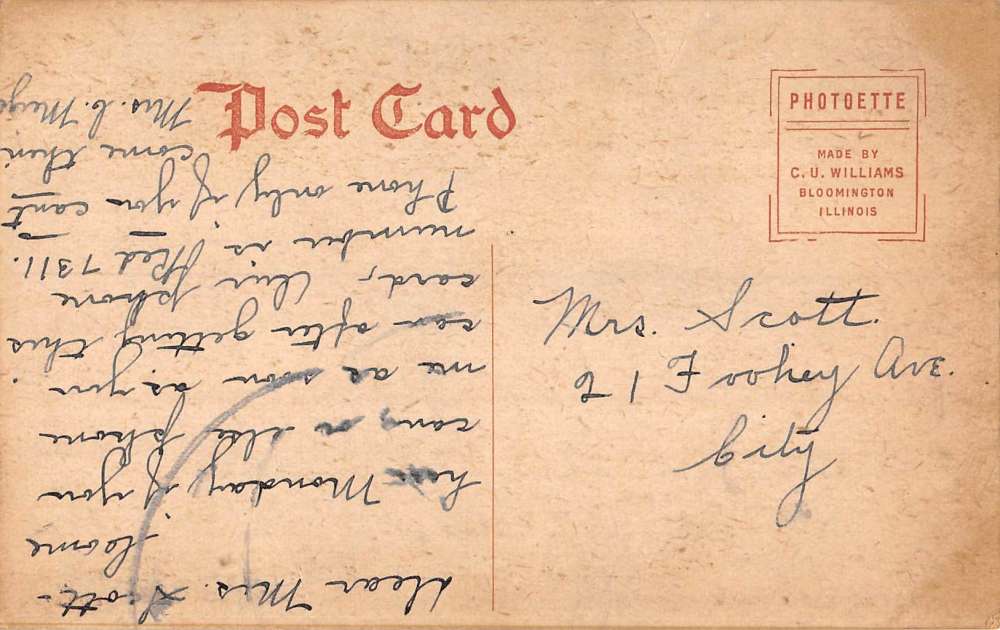 Post Card
PHOTOETTE
MADE BY
C. U. WILLIAMS
BLOOMINGTON
ILLINOIS
Mrs. Scott.
21 Foohey Ave.
City
Dear Mrs. Scott-
Come
here Monday if you
can, or else phone
me as soon as you
can after getting this
card, Our phone
number is Red 7311.
Phone only if you cant
come then.
Mrs. C.